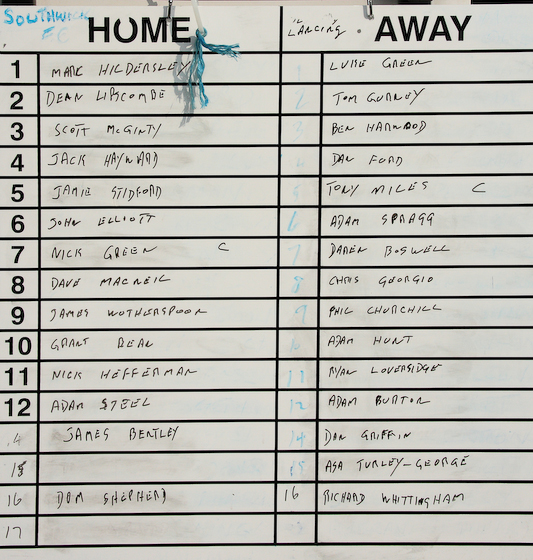 SOUTHWICK HOME "LANCING" AWAY
FC
1 MARC HILDERSLEY 1 LUKE GREEN
2 DEAN LIPSCOMBE 2 TOM GURNEY
3 SCOTT McGINTY 3 BEN HARWOOD
4 JACK HAYWARD 4 DAN FORD
5 JAMIE STIDFORD 5 TONY MILES C
6 JOHN ELLIOTT 6 ADAM SPRAGG
7 NICK GREEN C 7 DAREN BOSWELL
8 DAVE MACNEIL 8 CHRIS GEORGIO
9 JAMES WOTHERSPOON 9 PHIL CHURCHILL
10 GRANT DEAN 10 ADAM HUNT
11 NICK HEFFERMAN 11 RYAN LOVERIDGE
12 ADAM STEEL 12 ADAM BURTON
14 JAMES BENTLEY 14 DAN GRIFFIN
15 15 ASA TURLEY-GEORGE
16 DOM SHEPHERD 16 RICHARD WHITTINGHAM
17